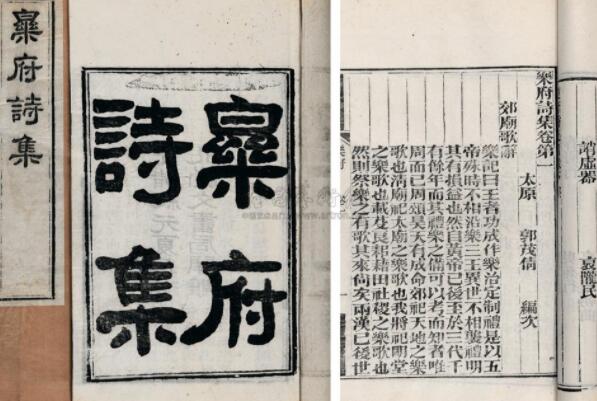 樂府詩集
樂府
詩集
樂府詩集卷第一
太原 郭茂倩 編次
郊廟歌辭
樂記曰王者功成作樂治定制禮是以五
帝殊時不相沿樂三王異世不相襲禮明
其有損益也然自黃帝已後至於三代千
有餘年而其禮樂之備可以考而知者唯
周而已周頌昊天有成命郊祀天地之樂
歌也清廟祀太廟之樂歌也我將祀明堂
之樂歌也載芟良耜藉田社稷之樂歌也
然則祭樂之有歌其來尚矣兩漢已後世